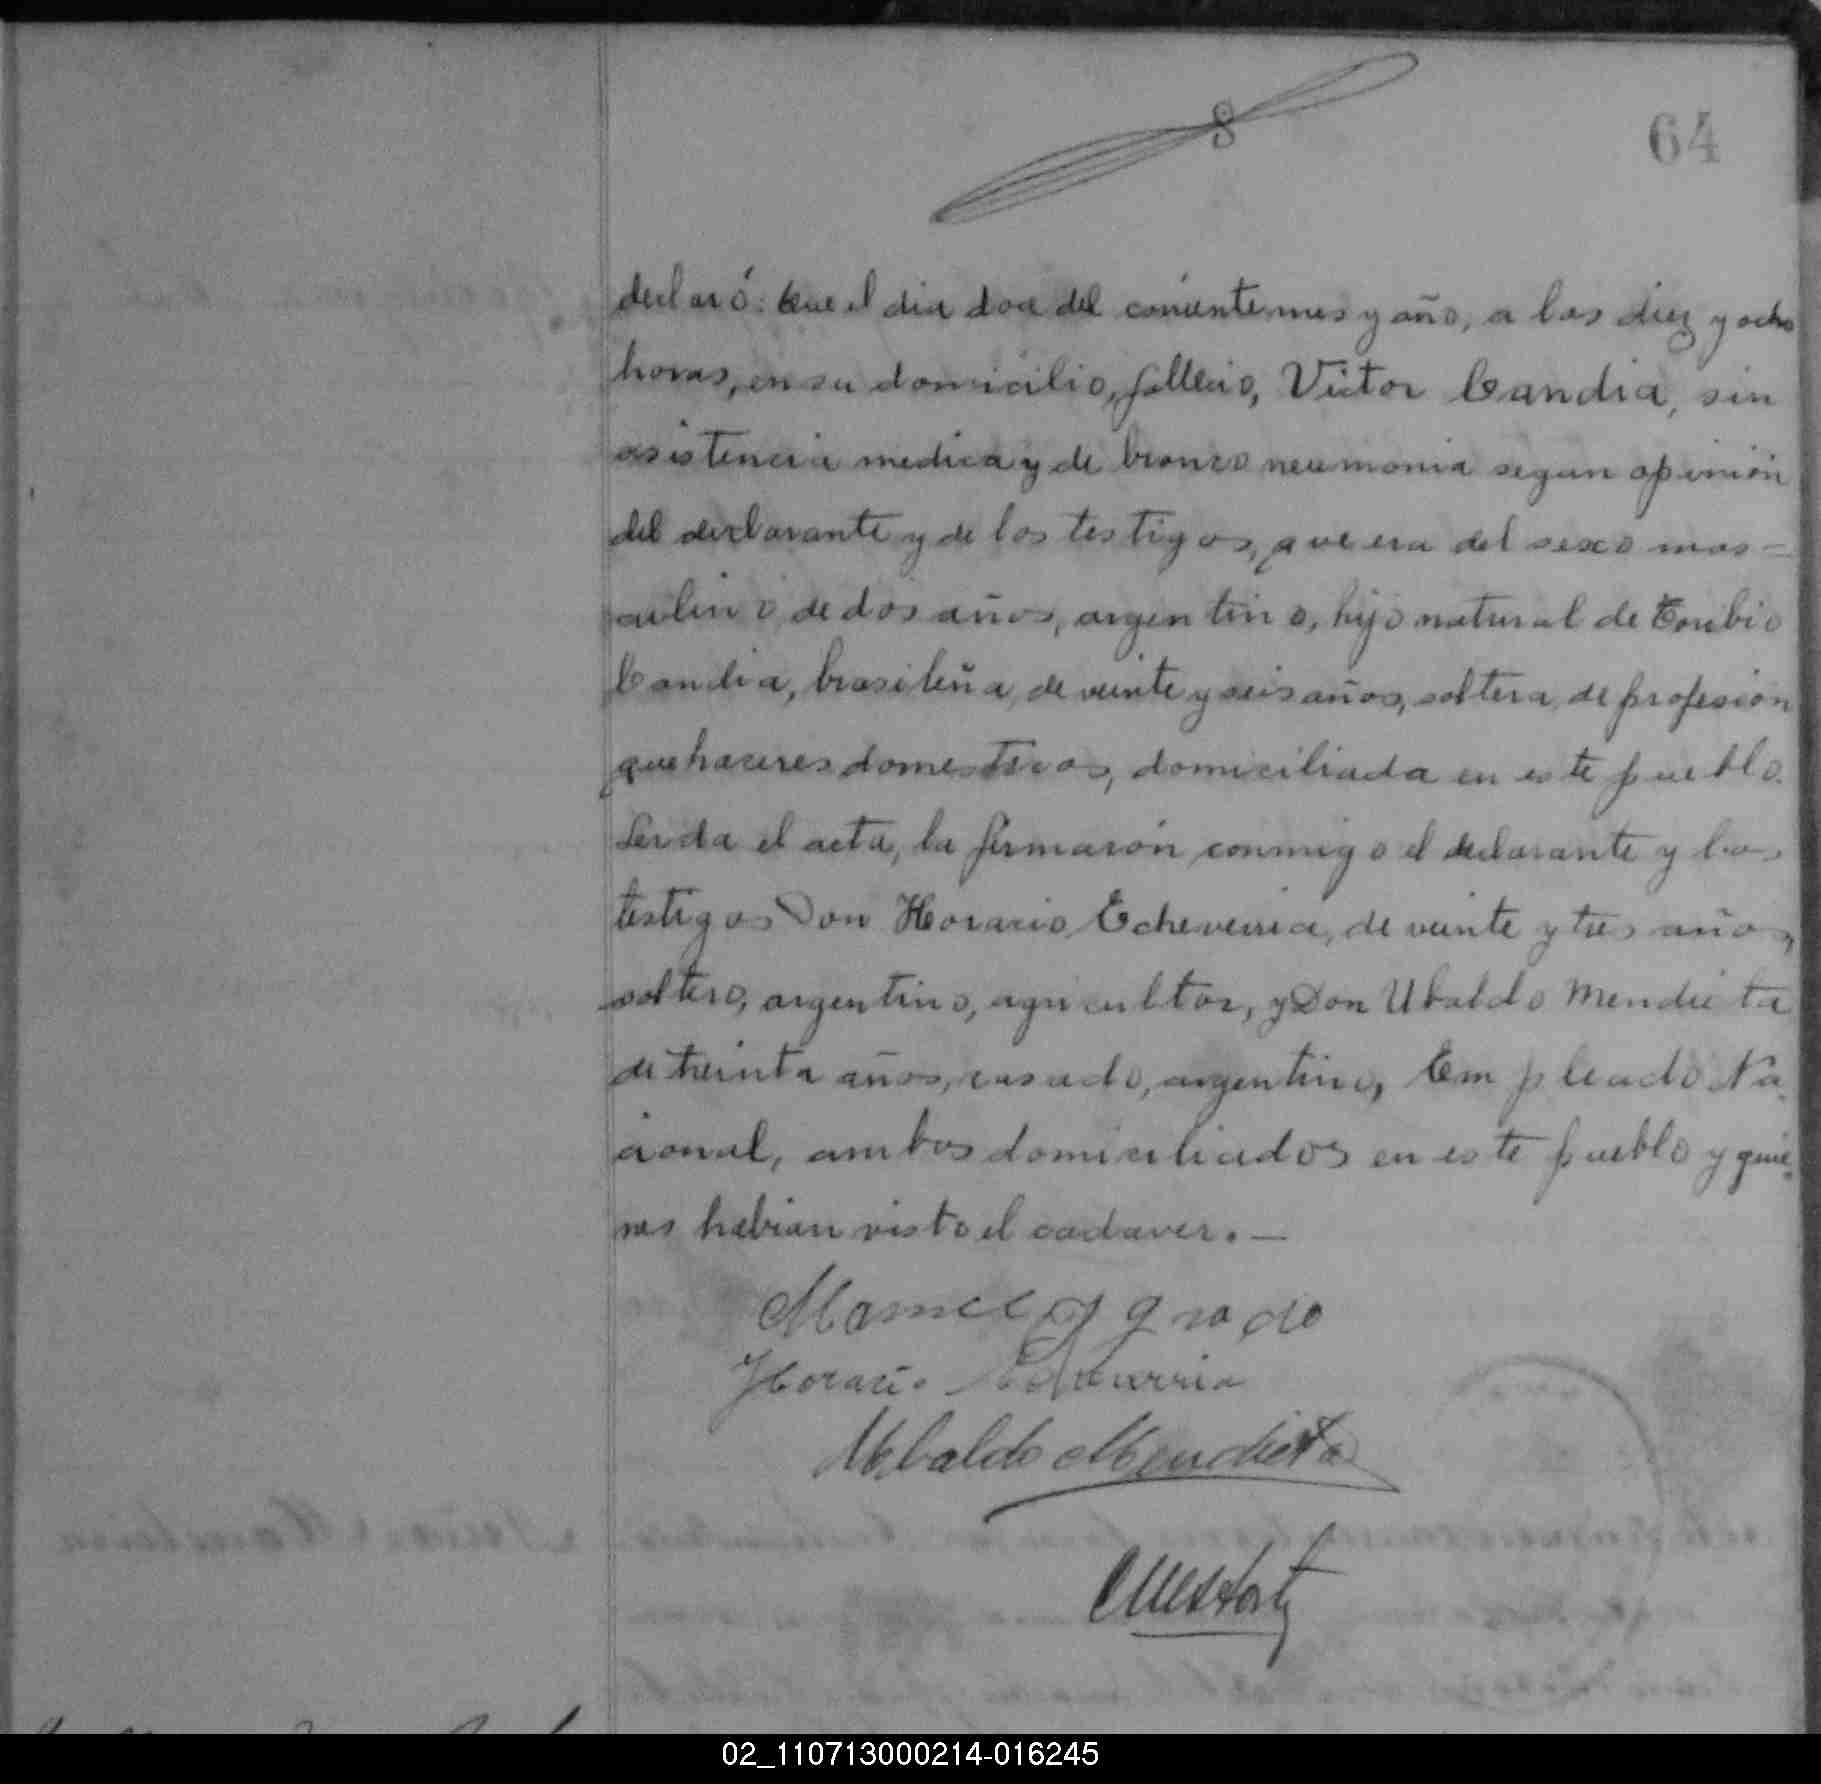 64
declaró: Que el dia doce del corriente mes y año, a las diez y ocho
horas, en su domicilio, fallecio, Victor Candia, sin
asistencia medica y de bronco neumonia segun opinión
del declarante y de los testigos, que era del sexo mas-
culino, de dos años, argentino, hijo natural de Toribia
Candia, brasileña, de veinte y seis años, soltera, de profesion
quehaceres domesticos, domiciliada en este pueblo.
Leida el acta, la firmarón conmigo el declarante y los
testigos Don Horacio Echeverria, de veinte y tres años,
soltero, argentino, agricultor, y Don Ubaldo Mendieta
de treinta años, casado, argentino, Empleado Na-
cional, ambos domiciliados en este pueblo y quie-
nes habian visto el cadaver.—
Manuel Agrado
Horacio Echeverria
Ubaldo Mendieta
02_110713000214-016245